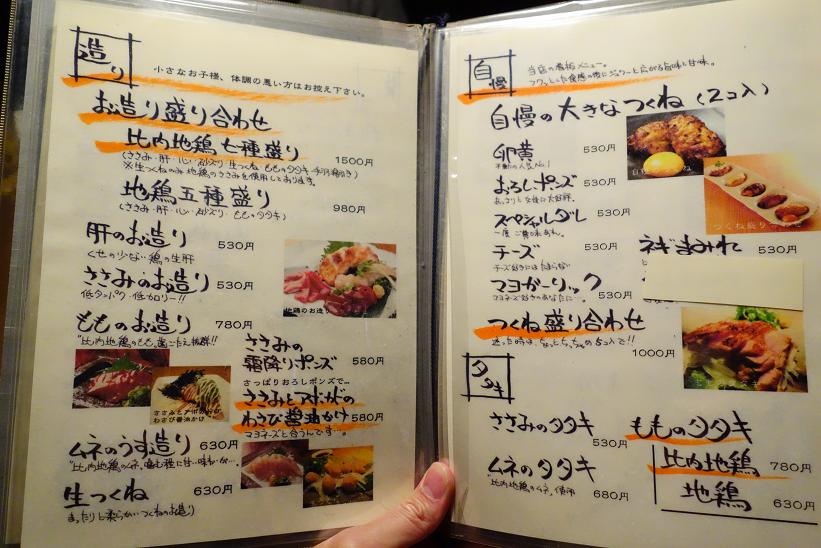 造り
小さなお子様、体調の悪い方はお控え下さい。
お造り盛り合わせ
比内地鶏七種盛り 1500円
※生つくねのみ地鶏のささみを使用しております。
地鶏五種盛り 980円
(ささみ・肝・心・砂ズリ・もものタタキ)
肝のお造り 530円
くせの少ない鶏の生肝
ささみのお造り 530円
低タンパク・低カロリー!!
地鶏のお造り
もものお造り 780円
"比内地鶏のもも、歯ごたえ抜群!!
ささみの
霜降りポンズ 580円
さっぱりおろしポンズで…
ささみとアボカドの
わさび醤油かけ
ささみとアボカドの
わさび醤油かけ 580円
マヨネーズと合うんです…。
ムネのうす造り 630円
生つくね 630円
まったりと柔らかいつくねのお造り
自慢
当店の看板メニュー。
自慢の大きなつくね(2コ入)
卵黄 530円
不動の人気No.1
おろしポンズ 530円
あっさりと女性に大好評。
スペシャルダレ 530円
一度ご賞味あれ。
チーズ 530円
チーズ好きにはたまらない
マヨガーリック 530円
マヨネーズ好きのあなたに
つくね盛り合わせ
ネギまみれ 530円
つくね盛り合わせ
1000円
タタキ
ささみのタタキ 530円
ムネのタタキ 680円
"比内地鶏のムネ、使用
もものタタキ
比内地鶏 780円
地鶏 630円